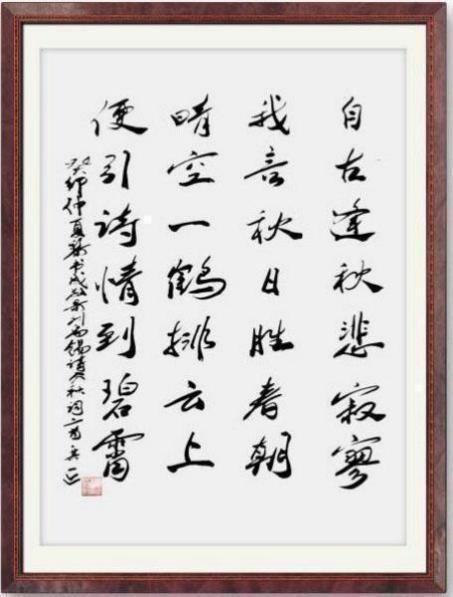 自古逢秋悲寂寥
我言秋日胜春朝
晴空一鹤排云上
便引诗情到碧霄
癸卯仲夏 刘禹锡 秋词一首